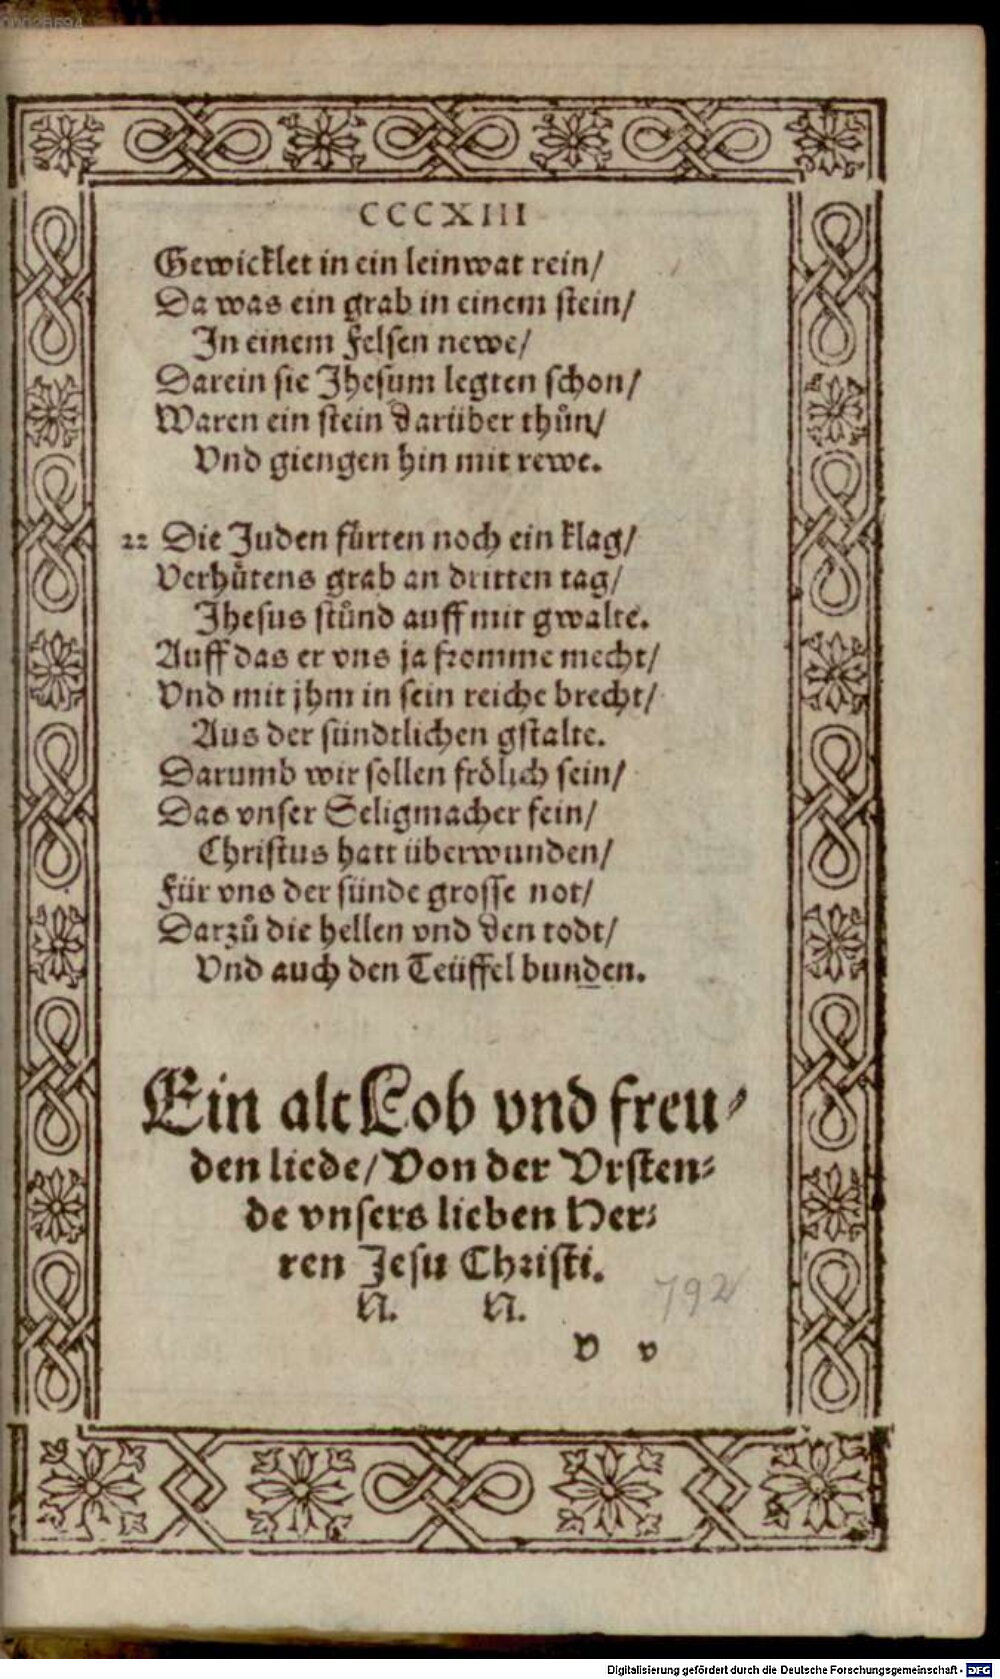 00028694
CCCXIII
Gewicklet in ein leinwat rein/
Da was ein grab in einem stein/
In einem Felsen newe/
Darein sie Jhesum legten schon/
Waren ein stein darüber thůn/
Vnd giengen hin mit rewe.
22 Die Juden fürten noch ein klag/
Verhůtens grab an dritten tag/
Jhesus stůnd auff mit gwalte.
Auff das er vns ja fromme mecht/
Vnd mit jhm in sein reiche brecht/
Aus der sündtlichen gstalte.
Darumb wir sollen frölich sein/
Das vnser Seligmacher fein/
Christus hatt überwunden/
Für vns der sünde grosse not/
Darzů die hellen vnd den todt/
Vnd auch den Teüffel bunden.
Ein alt Lob vnd freu-
den liede/ Von der Vrsten-
de vnsers lieben Her-
ren Jesu Christi.
N. N.
792
V v
Digitalisierung gefördert durch die Deutsche Forschungsgemeinschaft - DFG